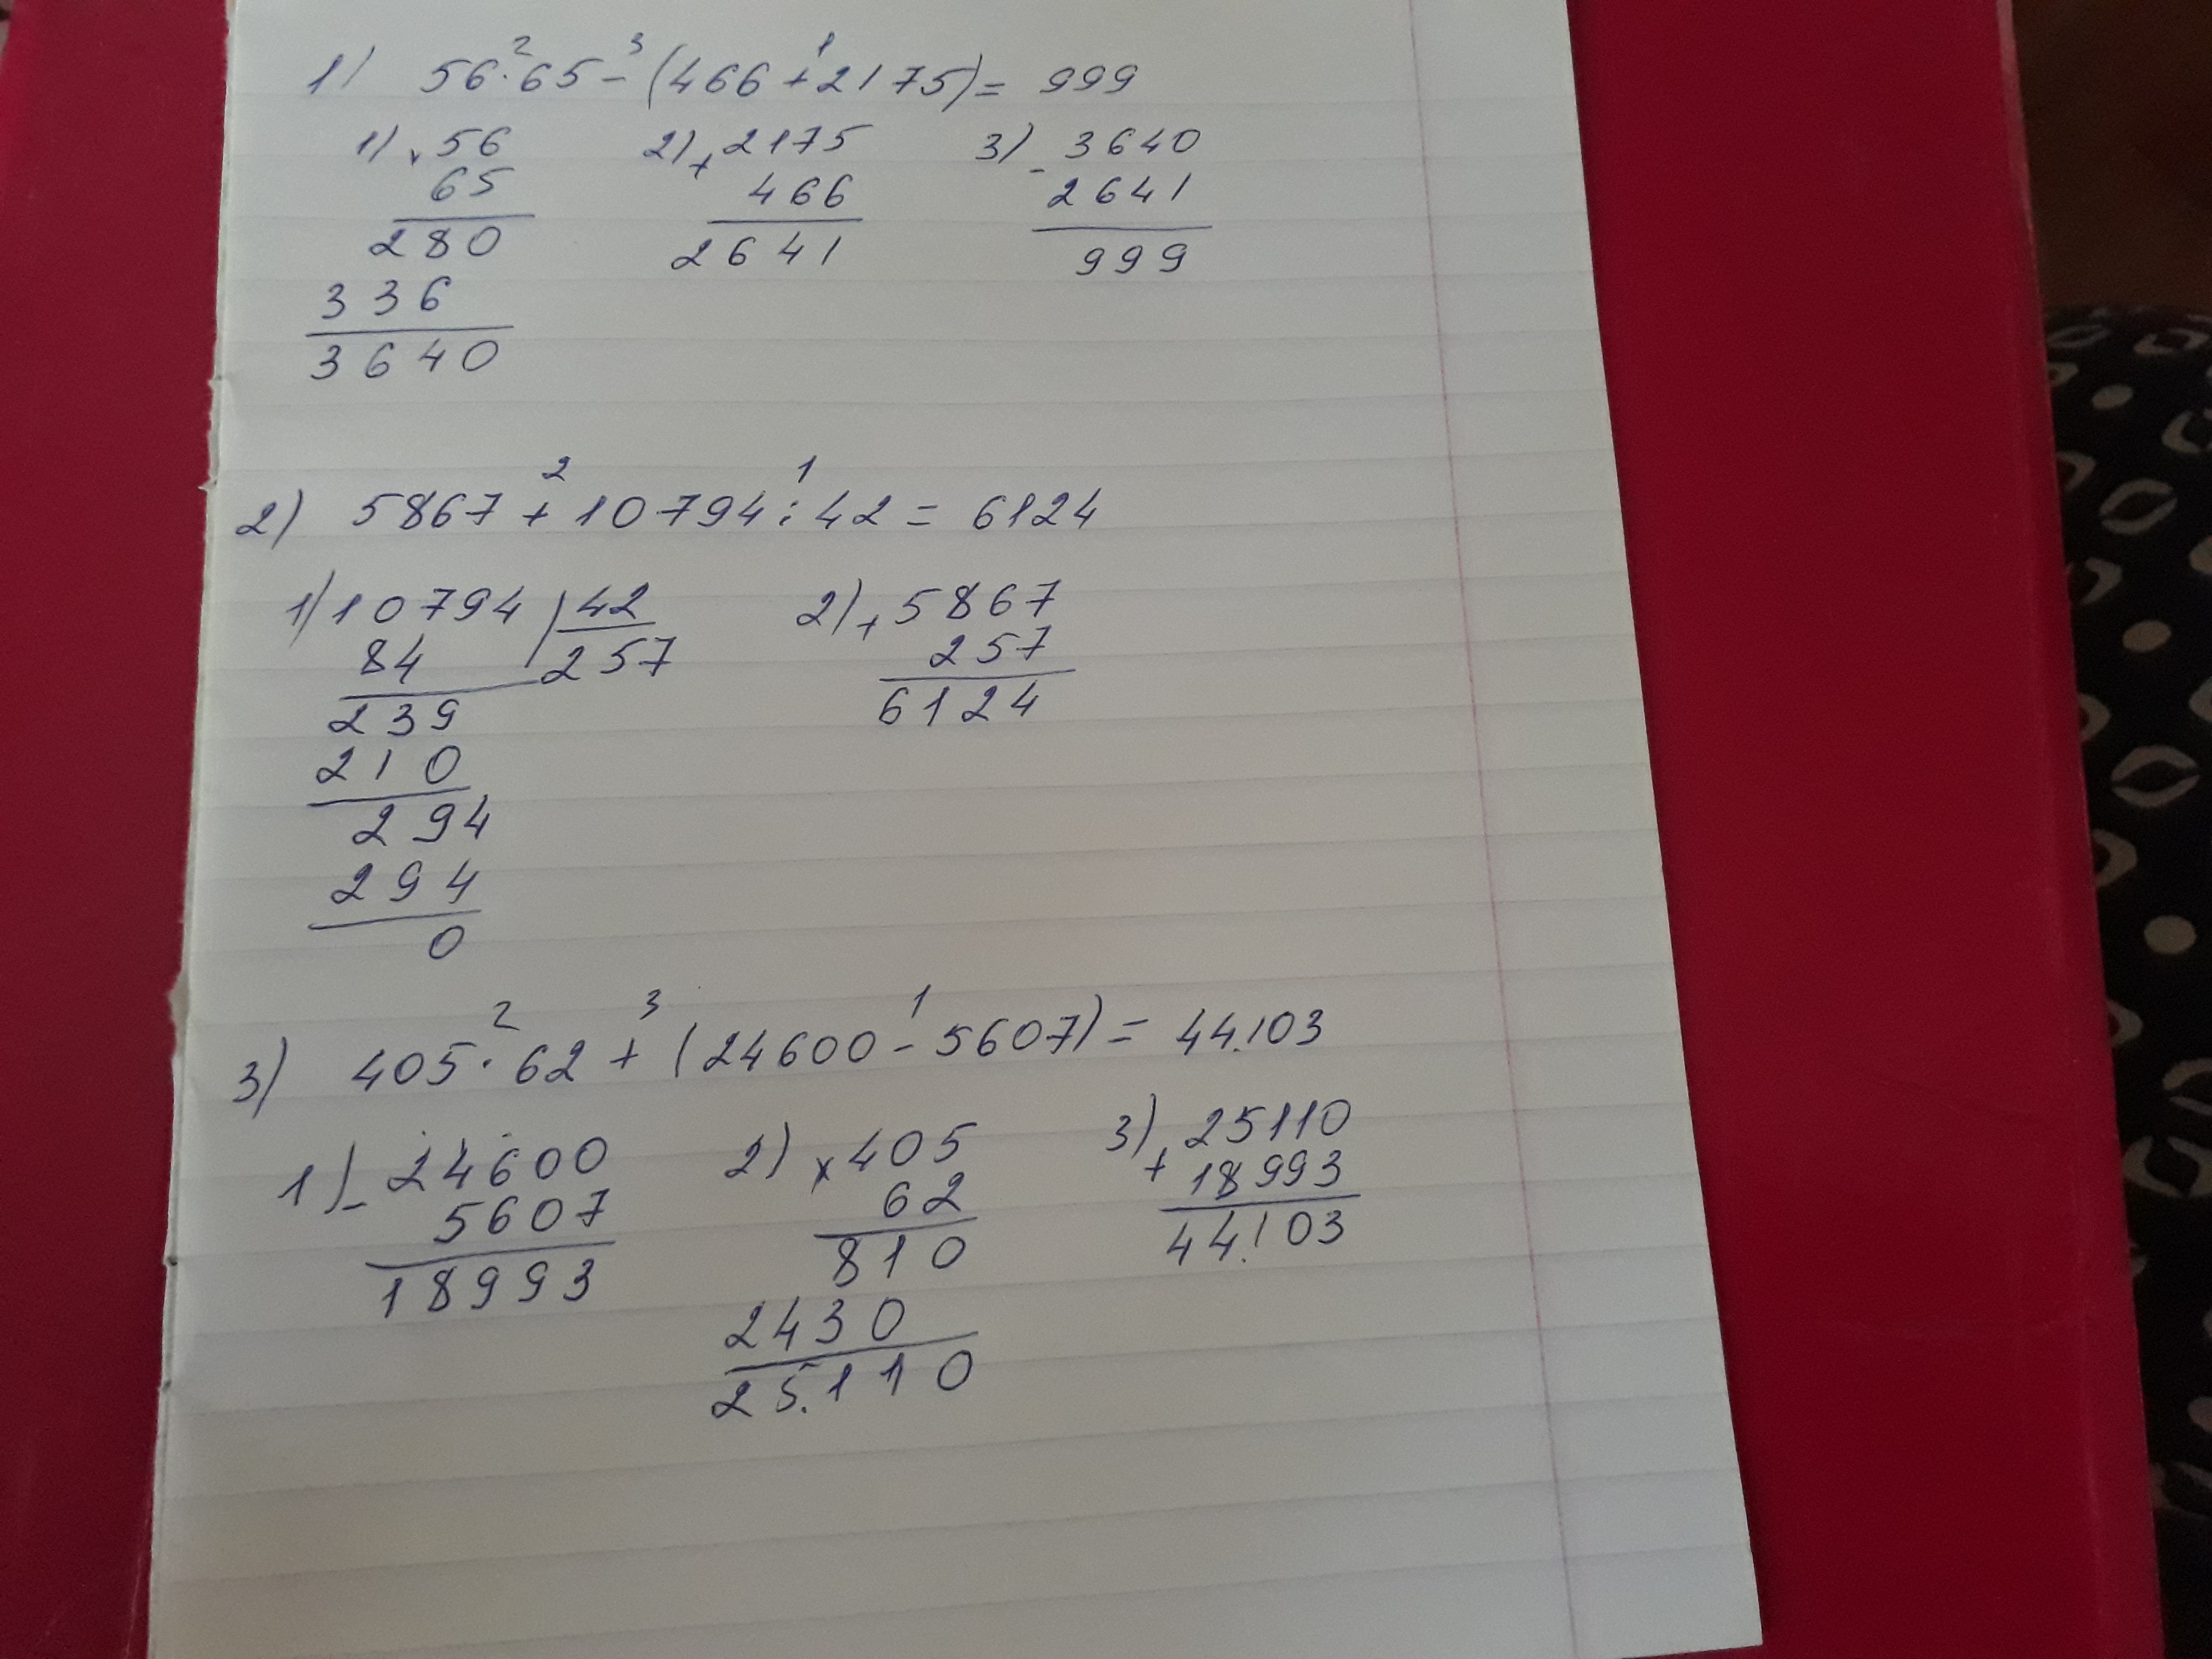 2 3 1
1) 56·65-(466+2175)= 999
1) × 56 2) + 2175 3) - 3640
65 466 2641
280 2641 999
336
3640
2 1
2) 5867+10794:42= 6124
1) 10794 42 2) + 5867
84 257 257
239 6124
210
294
294
0
2 3 1
3) 405·62+(24600-5607)= 44.103
1) - 24600 2) × 405 3) + 25110
5607 62 18993
18993 810 44.103
2430
25.110